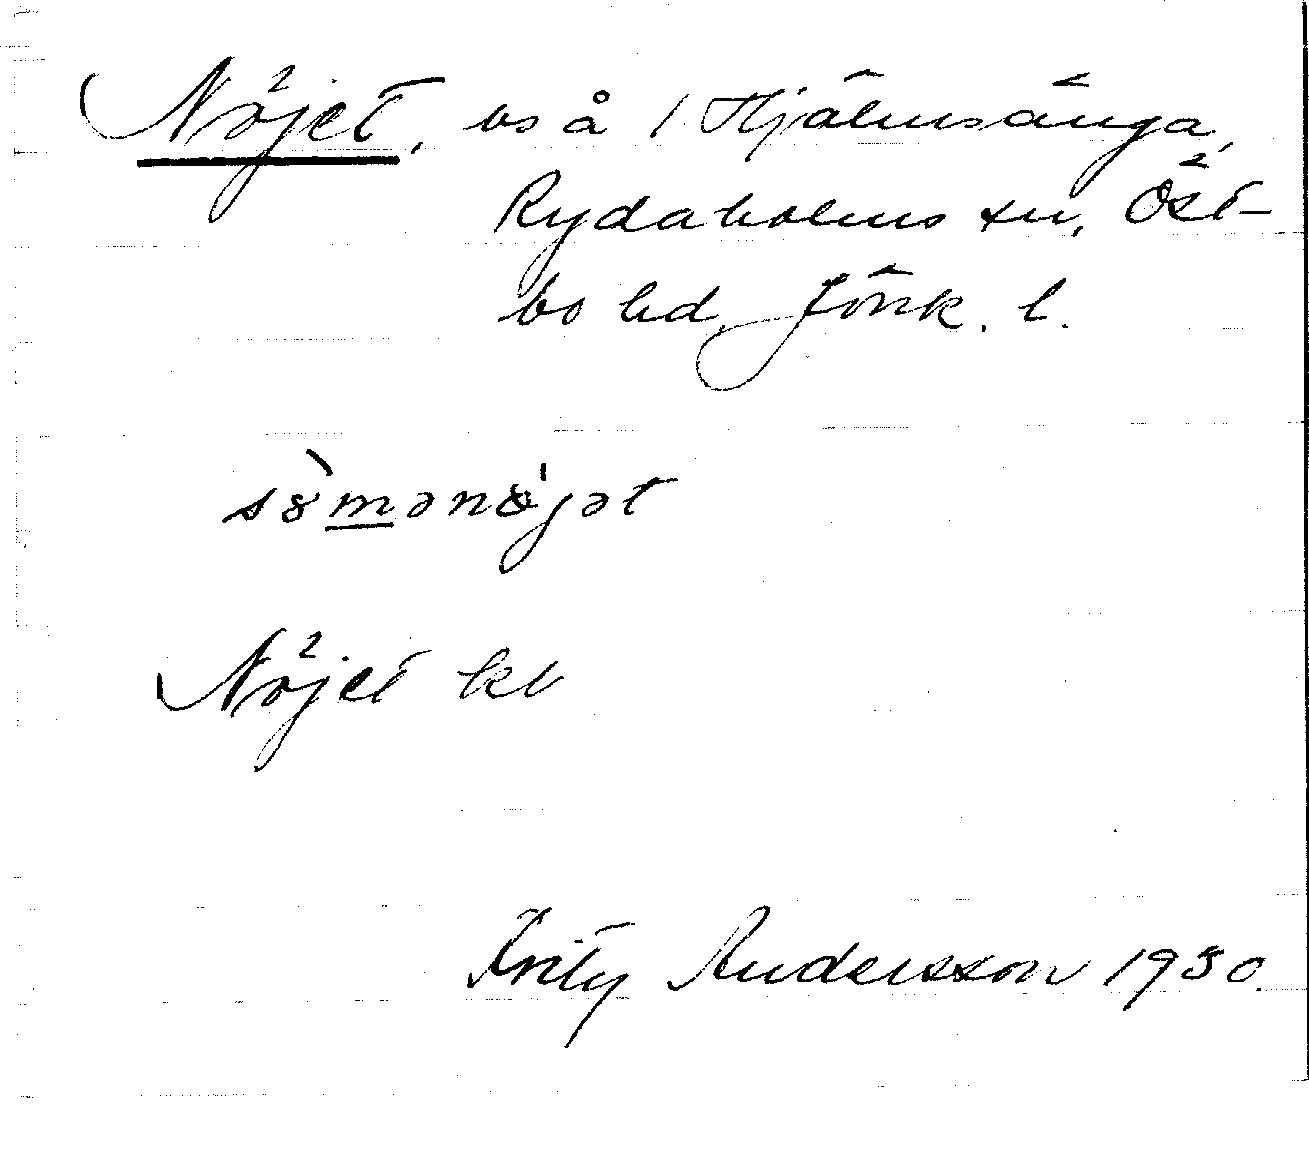 Nöjet, bs å 1 Hjälmsänga,
Rydaholms sn, Öst-
bo hd, Jönk. l.
sȯ̀mənö́jət
Nöjet kb
Frity Andersson 1930.